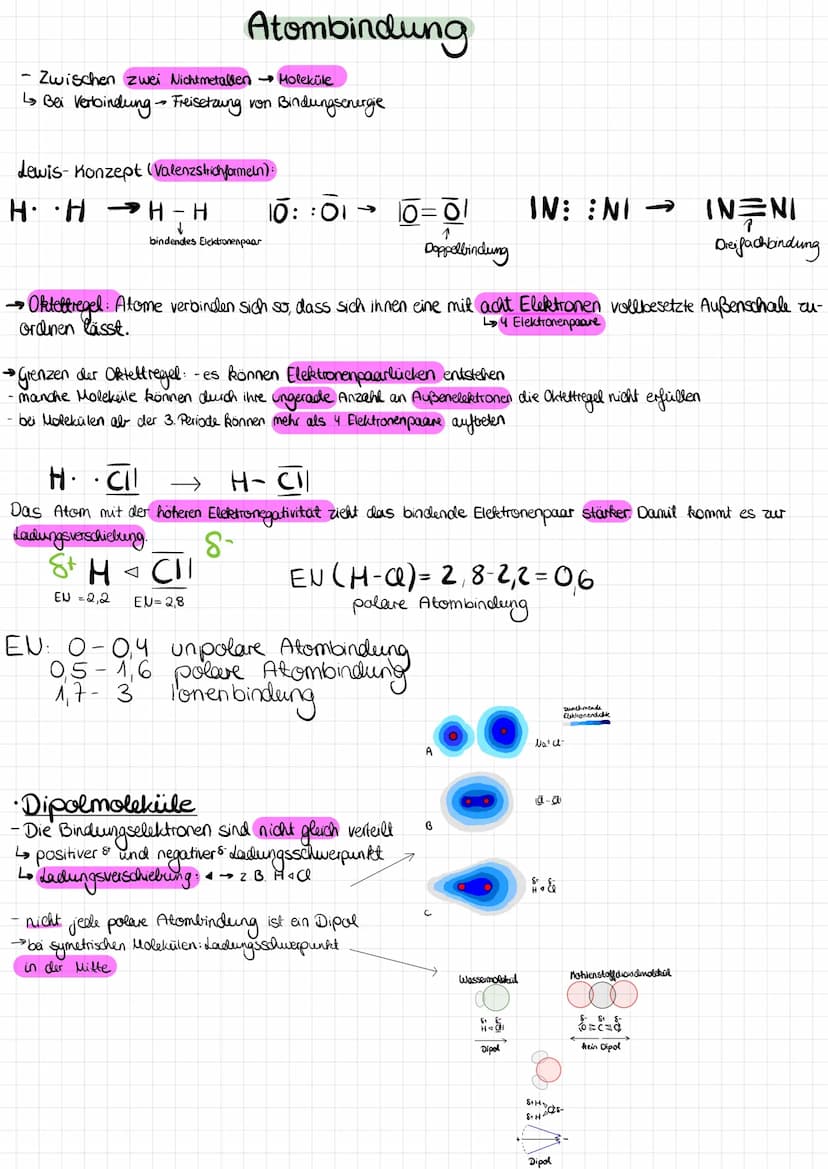 Atombindung
- Zwischen zwei Nichtmetallen → Moleküle
↳ Bei Verbindung → Freisetzung von Bindungsenergie
Lewis-Konzept (Valenzstrichformeln):
H· ·H → H–H
bindendes Elektronenpaar
|O̅: :O̅| → |O̲̅=O̲̅|
Doppelbindung
|N⋮ ⋮N| → |N≡N|
Dreifachbindung
→ Oktettregel: Atome verbinden sich so, dass sich ihnen eine mit acht Elektronen vollbesetzte Außenschale zu-
↳ 4 Elektronenpaare
ordnen lässt.
→ Grenzen der Oktettregel: - es können Elektronenpaarlücken entstehen
- manche Moleküle können durch ihre ungerade Anzahl an Außenelektronen die Oktettregel nicht erfüllen
- bei Molekülen ab der 3. Periode können mehr als 4 Elektronenpaare auftreten
H· ·C̅l̅| → H–C̅l̅|
Das Atom mit der höheren Elektronegativität zieht das bindende Elektronenpaar stärker Damit kommt es zur
Ladungsverschiebung.
δ+ H ◁ C̲̅l̲̅| δ-
EN =2,2 EN=2,8
EN (H-Cl)= 2,8-2,2=0,6
polare Atombindung
EN: 0-0,4 unpolare Atombindung
0,5-1,6 polare Atombindung
1,7-3 Ionenbindung
zunehmende
Elektronendichte
A
Na⁺Cl⁻
B
Cl-Cl
C
δ+ δ-
H◁Cl
·Dipolmoleküle
- Die Bindungselektronen sind nicht gleich verteilt
↳ positiver δ+ und negativer δ- Ladungsschwerpunkt
↳ Ladungsverschiebung: ◂ → z.B. H◁Cl
- nicht jede polare Atombindung ist ein Dipol
→ bei symetrischen Molekülen: Ladungsschwerpunkt
in der Mitte
Wassermolekül
δ+ δ-
H◁Cl
Dipol
Kohlenstoffdioxidmolekül
δ- δ+ δ-
O=C=O
kein Dipol
δ+H
Oδ-
δ+H
+ -
Dipol